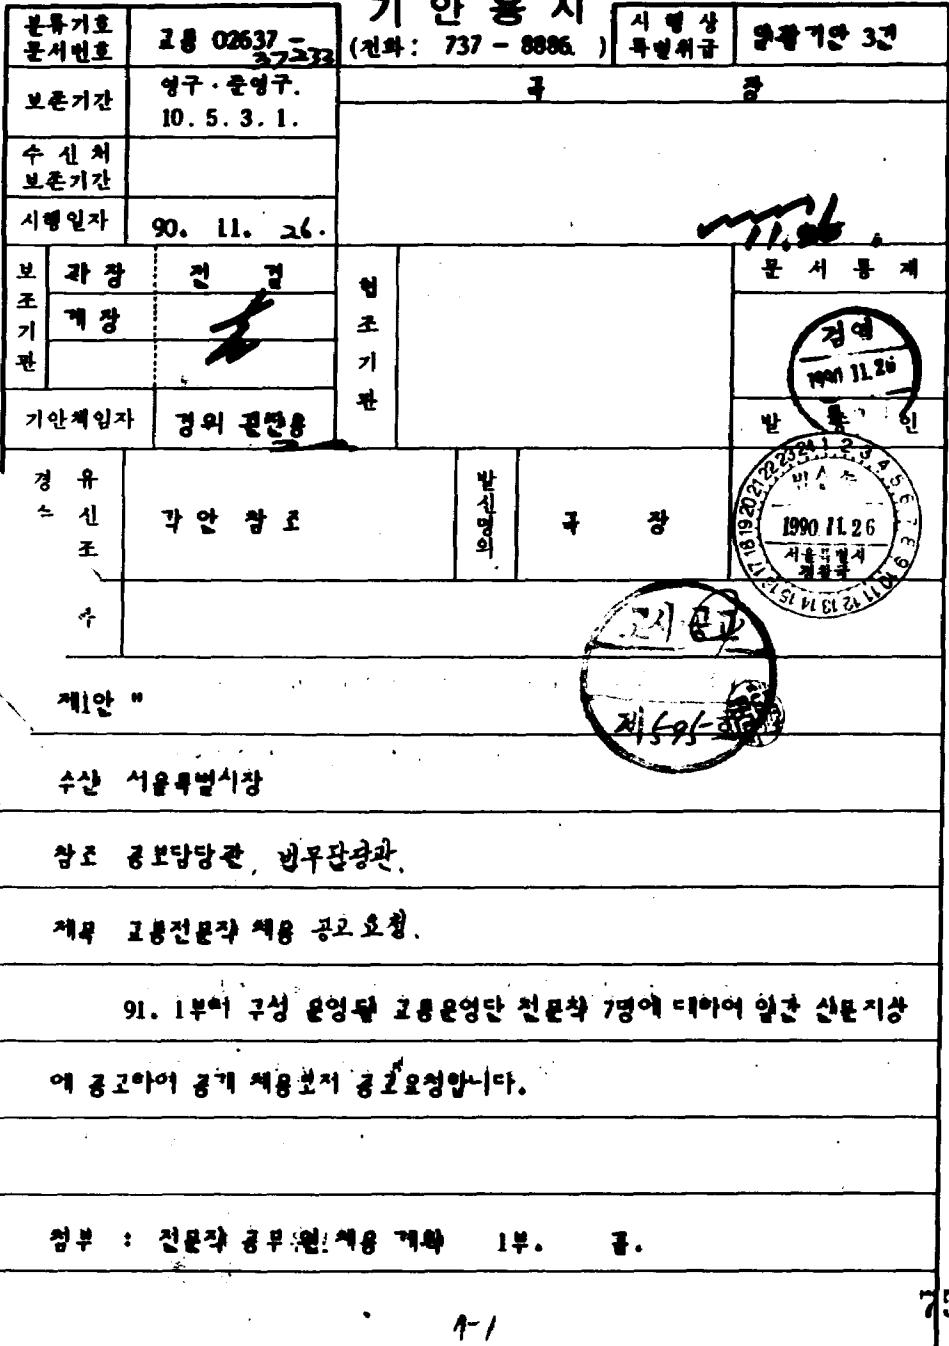 기 안 용 지
분류기호
문서번호
교통 02637 -
37233
(전화 : 737 - 8886. )
시 행 상
특별취급
일괄기안 3건
보존기간
영구 · 준영구.
10. 5. 3. 1.
국 장
수 신 처
보존기간
시행일자
90. 11. 26.
11.26.
보조기관
과 장
전 결
계 장
협조기관
문 서 통 제
검열
1990 11.26
기안책임자
경위
발 인
경 유
수 신
참 조
각 안 참 조
발신명의
국 장
발송
1990 11.26
서울특별시
경찰국
고시 공고
제1안 "
수신 서울특별시장
참조 공보담당관, 법무담당관.
제목 교통전문직 채용 공고 요청.
91. 1부터 구성 운영될 교통운영단 전문직 7명에 대하여 일간 신문지상
에 공고하여 공개 채용코저 공고요청합니다.
첨부 : 전문직 공무원 채용 계획 1부. 끝.
1-1